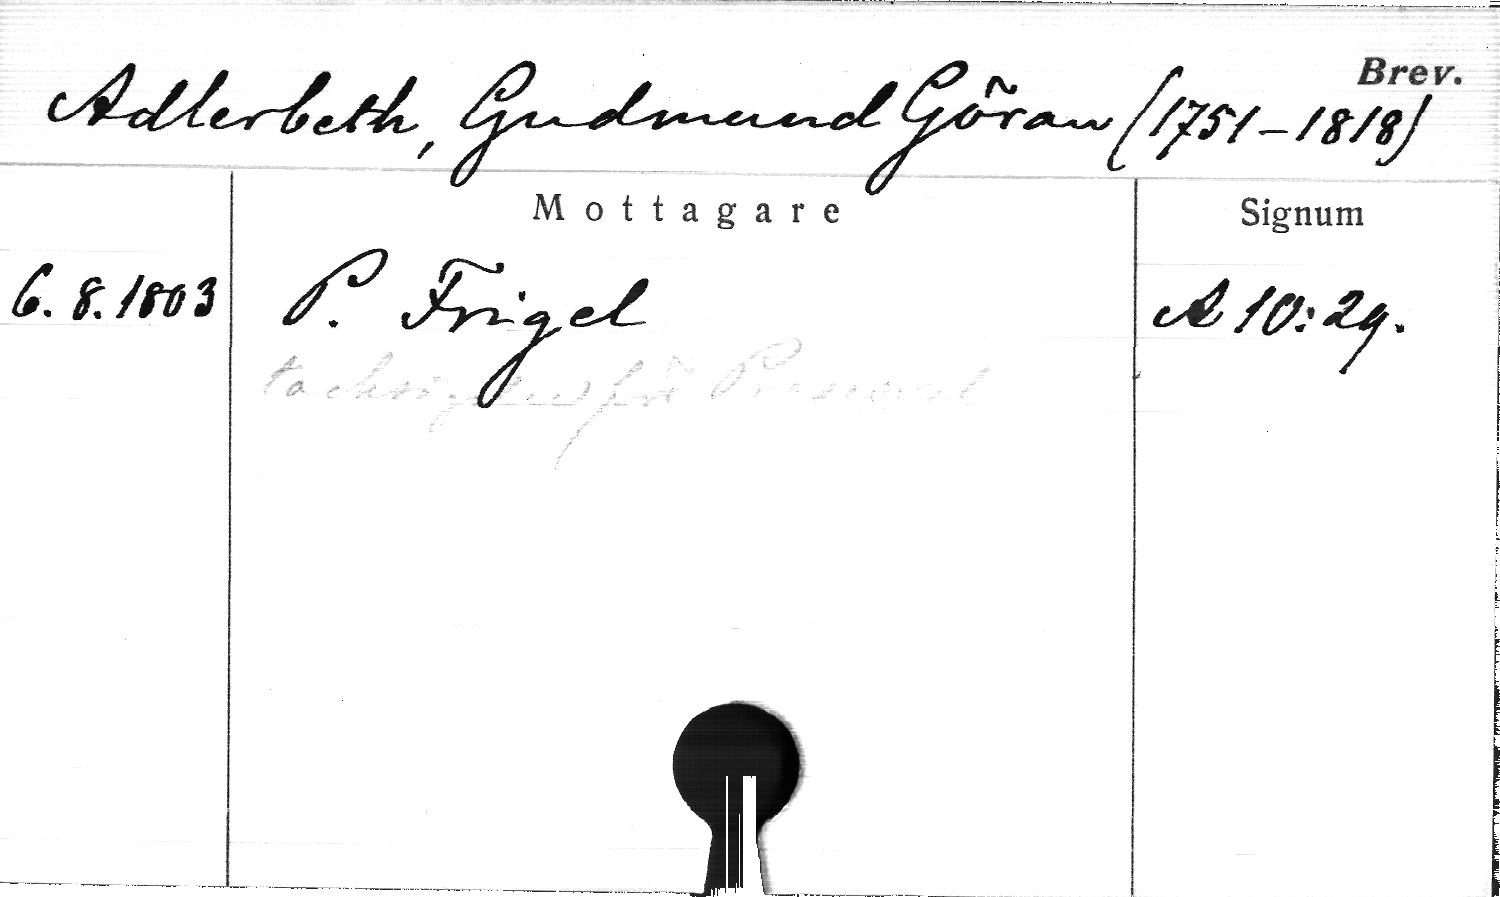 Brev.
Adlerbeth, Gudmund Göran (1751-1818)
Mottagare Signum
6. 8. 1803 P. Frigel A 10:29.
för